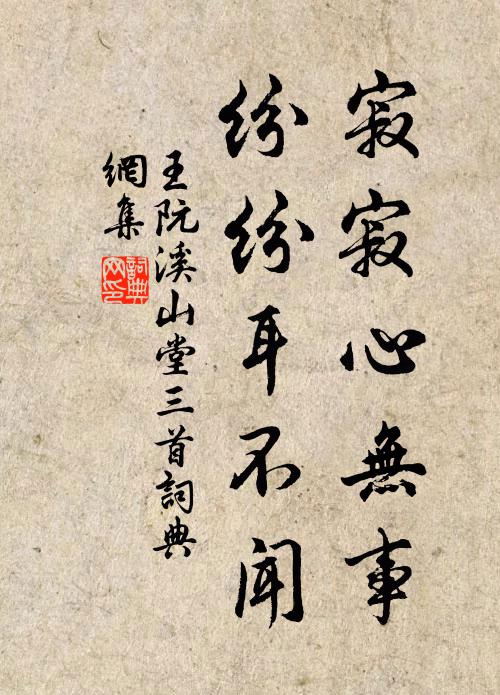 寂寂心無事
紛紛耳不聞
王阮溪山堂三首詞典
網集
詞典
网印